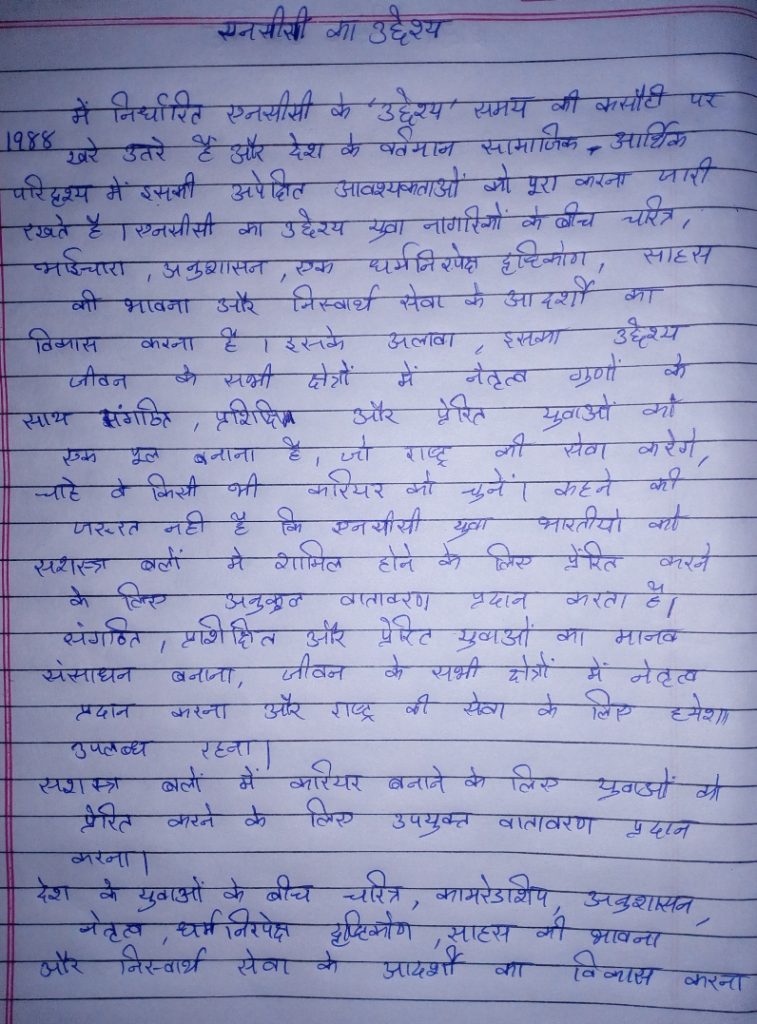 एनसीसी का उद्देश्य
में निर्धारित एनसीसी के 'उद्देश्य' समय की कसौटी पर
1988 खरे उतरे हैं और देश के वर्तमान सामाजिक - आर्थिक
परिदृश्य में इसकी अपेक्षित आवश्यकताओं को पूरा करना जारी
रखते है । एनसीसी का उद्देश्य युवा नागरिकों के बीच चरित्र,
भाईचारा , अनुशासन , एक धर्मनिरपेक्ष दृष्टिकोण, साहस
की भावना और निस्वार्थ सेवा के आदर्शों का
विकास करना है । इसके अलावा , इसका उद्देश्य
जीवन के सभी क्षेत्रों में नेतृत्व गुणों के
साथ संगठित , प्रशिक्षित और प्रेरित युवाओं का
एक पूल बनाना है, जो राष्ट्र की सेवा करेगे,
चाहे वे किसी भी करियर को चुनें। कहने की
जरूरत नही है कि एनसीसी युवा भारतीयो को
सशस्त्र बलों मे शामिल होने के लिए प्रेरित करने
के लिए अनुकूल वातावरण प्रदान करता है।
संगठित , प्रशिक्षित और प्रेरित युवाओं का मानव
संसाधन बनाना, जीवन के सभी क्षेत्रों में नेतृत्व
प्रदान करना और राष्ट्र की सेवा के लिए हमेशा
उपलब्ध रहना।
सशस्त्र बलों में करियर बनाने के लिए युवाओं को
प्रेरित करने के लिए उपयुक्त वातावरण प्रदान
करना।
देश के युवाओं के बीच चरित्र, कामरेडशिप, अनुशासन,
नेतृत्व , धर्मनिरपेक्ष दृष्टिकोण , साहस की भावना
और निस्वार्थ सेवा के आदर्शों का विकास करना